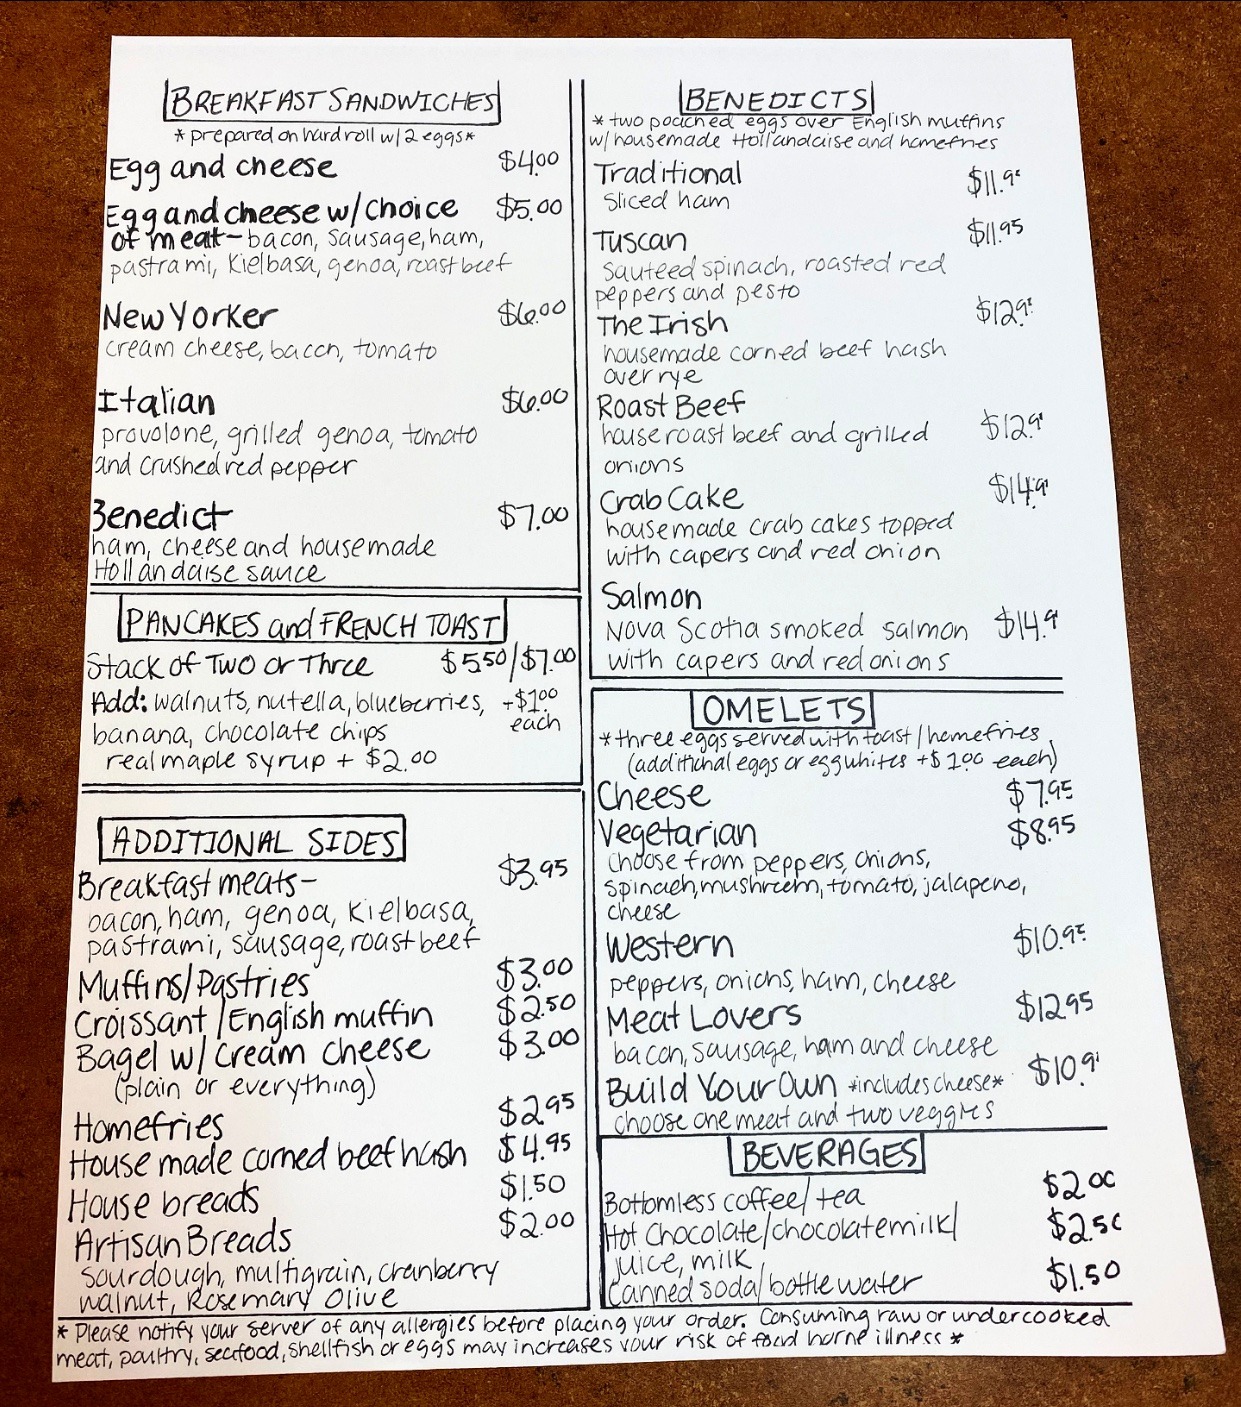 BREAKFAST SANDWICHES
*prepared on hard roll w/ 2 eggs*
Egg and cheese $4.00
Egg and cheese w/ choice $5.00
of meat - bacon, sausage, ham,
pastrami, Kielbasa, genoa, roast beef
New Yorker $6.00
cream cheese, bacon, tomato
Italian $6.00
provolone, grilled genoa, tomato
and crushed red pepper
Benedict $7.00
ham, cheese and housemade
Hollandaise sauce
PANCAKES and FRENCH TOAST
Stack of Two or Three $5.50/$7.00
Add: walnuts, nutella, blueberries, +$1.00
banana, chocolate chips each
real maple syrup + $2.00
ADDITIONAL SIDES
Breakfast meats- $3.95
bacon, ham, genoa, Kielbasa,
pastrami, sausage, roast beef
Muffins/Pastries $3.00
Croissant/English muffin $2.50
Bagel w/ Cream cheese $3.00
(plain or everything)
Homefries $2.95
House made corned beef hash $4.95
House breads $1.50
Artisan Breads $2.00
sourdough, multigrain, cranberry
walnut, Rosemary Olive
BENEDICTS
*two poached eggs over English muffins
w/ housemade Hollandaise and homefries
Traditional $11.95
sliced ham
Tuscan $11.95
sauteed spinach, roasted red
peppers and pesto
The Irish $12.95
housemade corned beef hash
over rye
Roast Beef
house roast beef and grilled $12.95
onions
Crab Cake $14.95
housemade crab cakes topped
with capers and red onion
Salmon
Nova Scotia smoked salmon $14.95
with capers and red onions
OMELETS
*three eggs served with toast/homefries
(additional eggs or egg whites +$1.00 each)
Cheese $7.95
Vegetarian $8.95
choose from peppers, onions,
spinach, mushroom, tomato, jalapeno,
cheese
Western $10.95
peppers, onions, ham, cheese
Meat Lovers $12.95
bacon, sausage, ham and cheese
Build Your Own *includes cheese* $10.95
choose one meat and two veggies
BEVERAGES
Bottomless coffee/tea $2.00
Hot Chocolate/chocolate milk/ $2.50
juice, milk
Canned soda/bottle water $1.50
* Please notify your server of any allergies before placing your order. Consuming raw or undercooked
meat, poultry, seafood, shellfish or eggs may increases your risk of food borne illness *